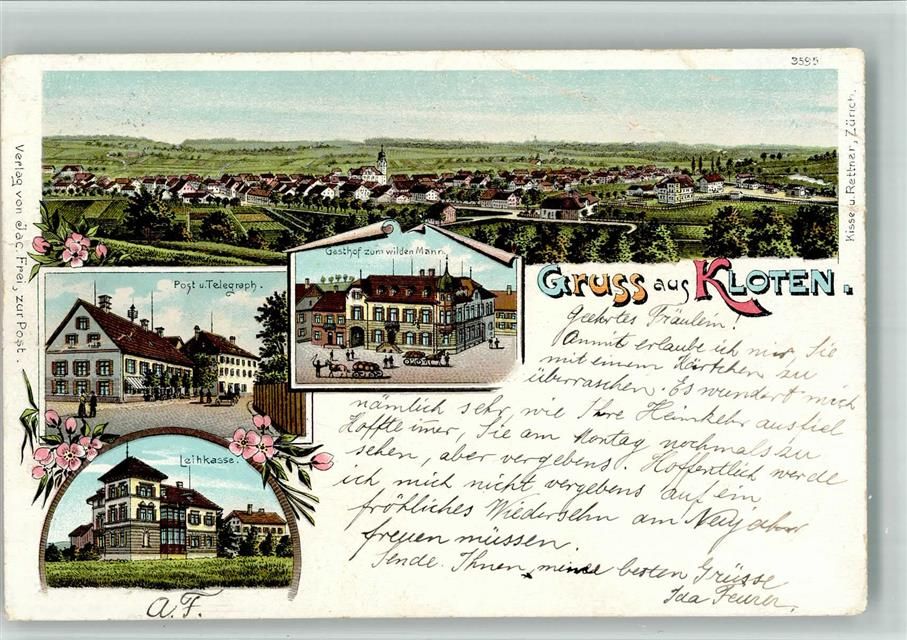 3595
Verlag von Jac. Frei, zur Post.
Kisse u. Rettner, Zürich.
Gasthof zum wilden Mann.
Post u. Telegraph.
Leihkasse.
Gruss aus Kloten.
Geehrtes Fräulein!
Anmit erlaube ich mir, Sie
mit einem Kärtchen zu
überraschen. Es wundert mich
nämlich sehr, wie Ihre Heimkehr ausfiel
Hoffte imer, Sie am Montag nochmals zu
sehen, aber vergebens. Hoffentlich werde
ich mich nicht vergebens auf ein
fröhliches Wiedersehn am Neujahr
freuen müssen.
Sende Ihnen meine besten Grüsse
Ida Feurer.
A.F.